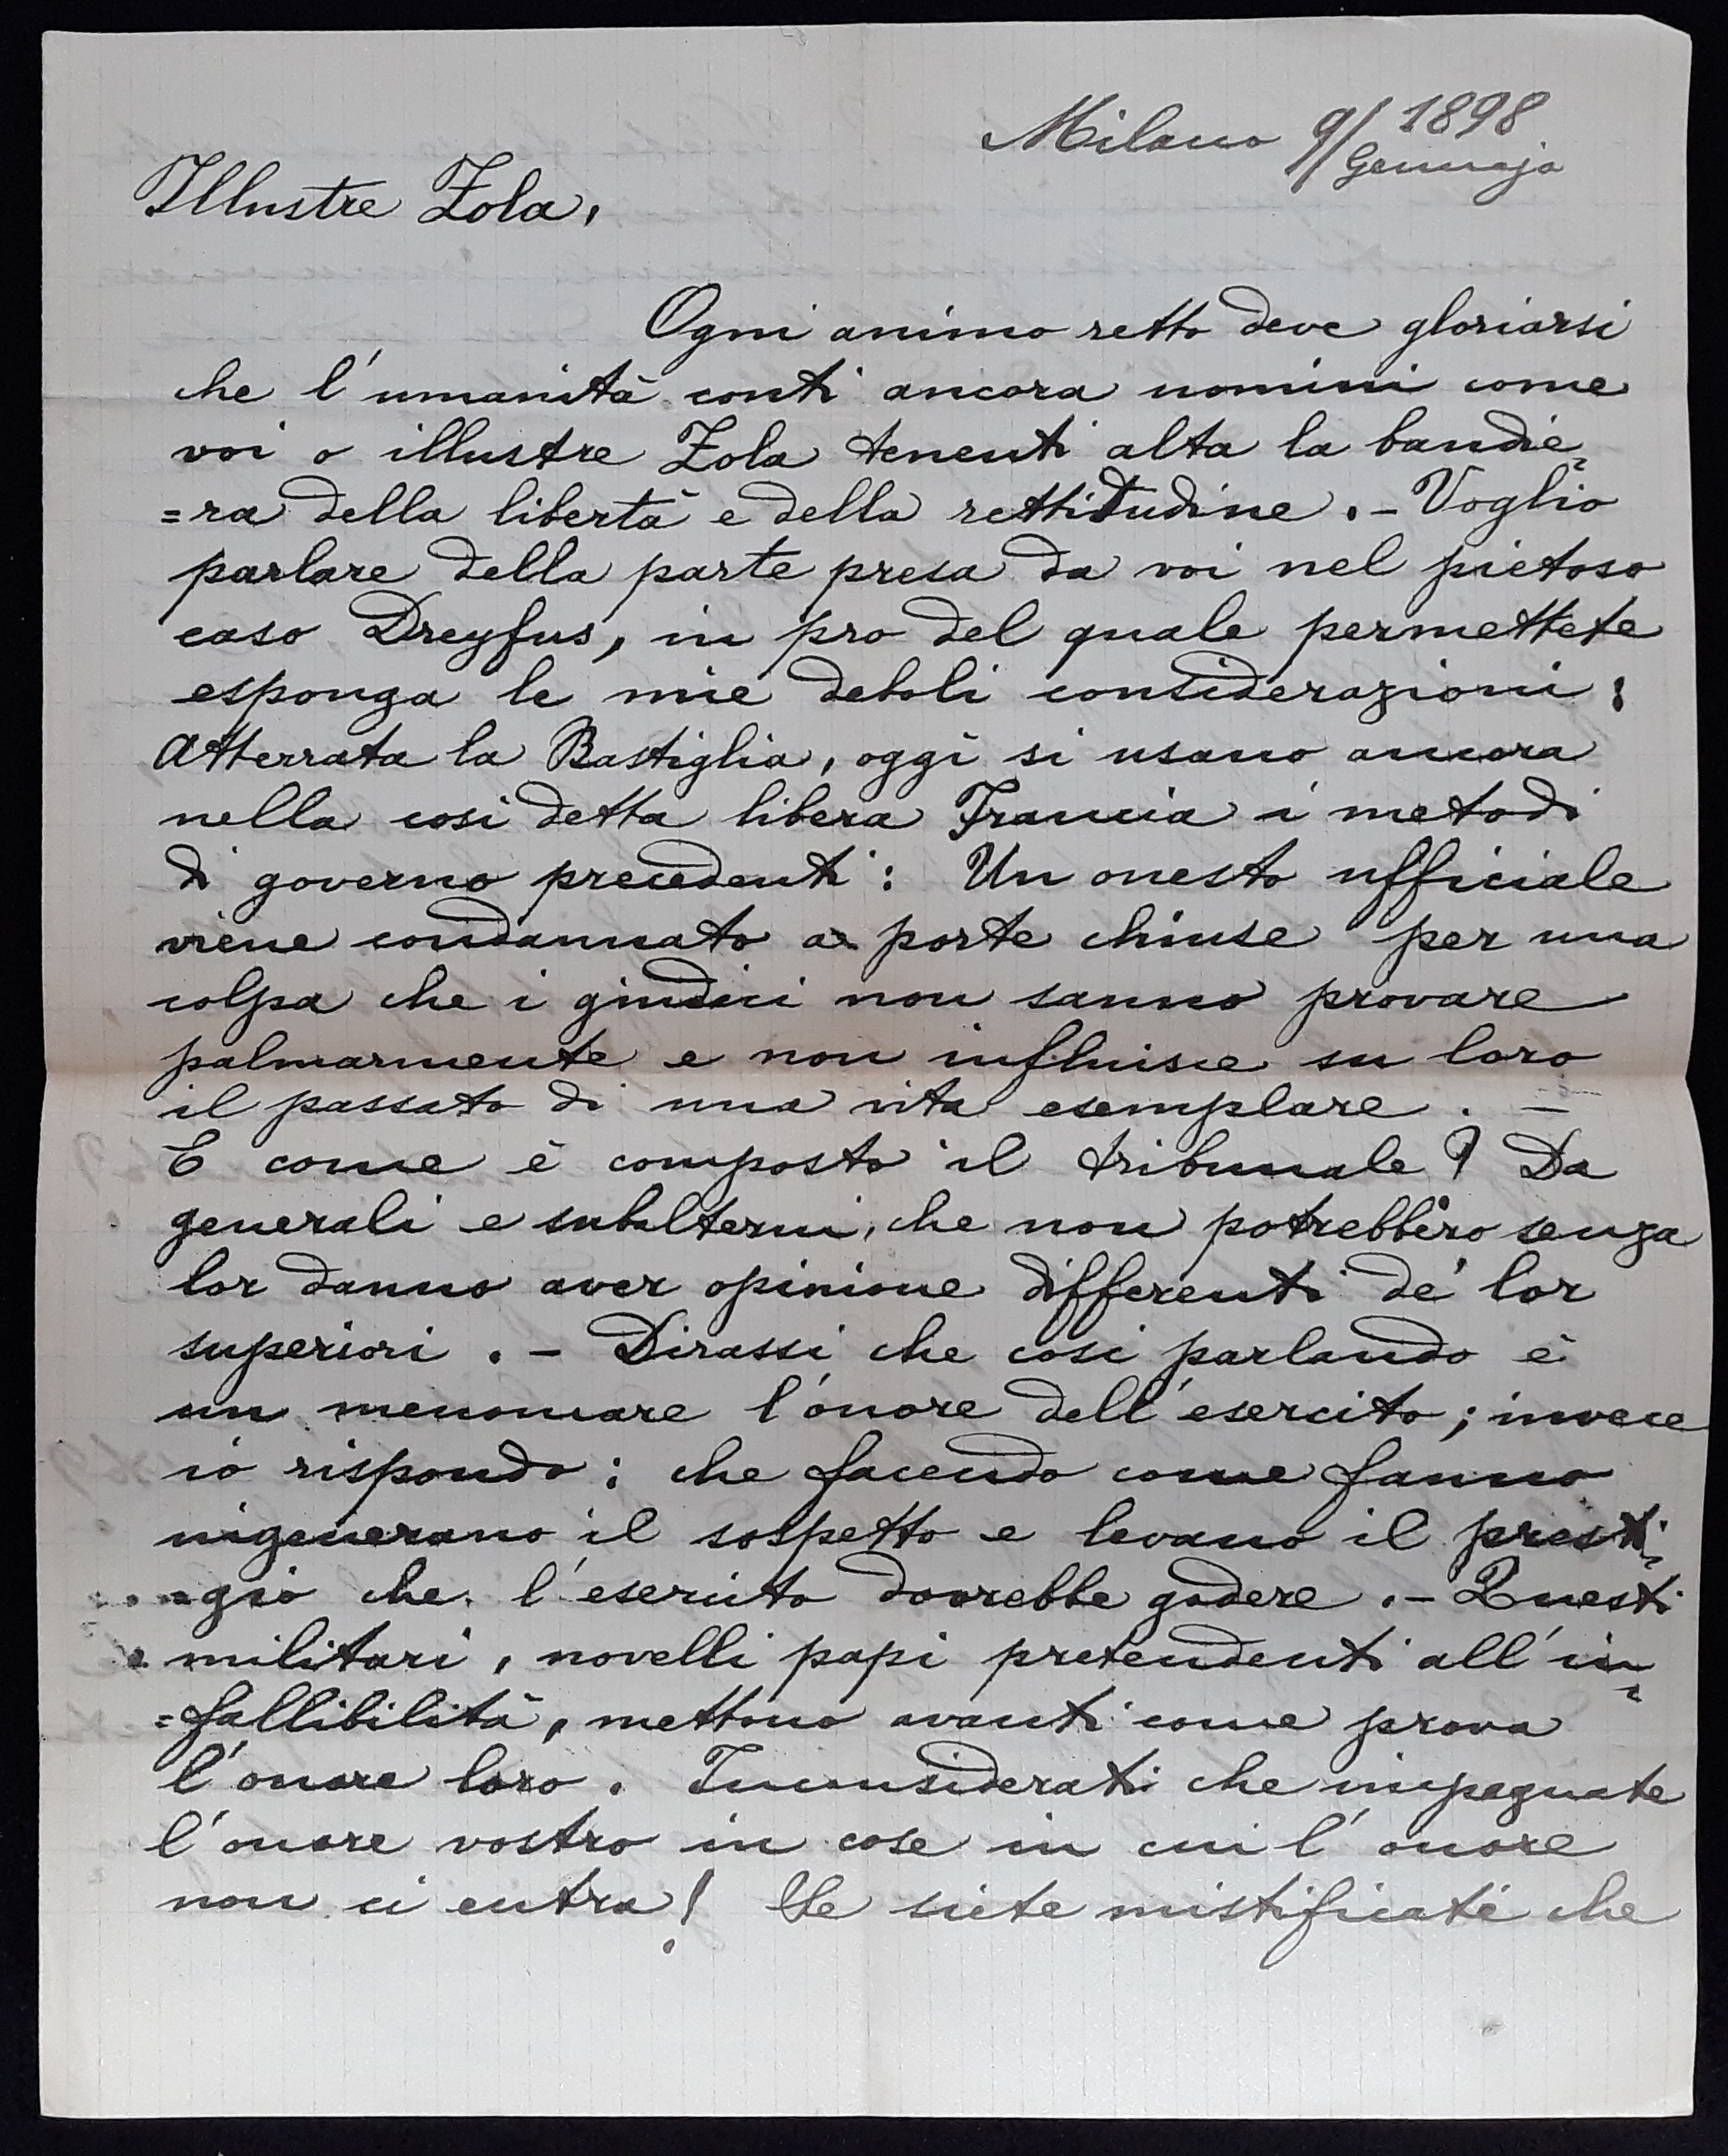 Milano 9/ 1898
Gennajo
Illustre Zola,
Ogni animo retto deve gloriarsi
che l'umanità conti ancora uomini come
voi o illustre Zola tenenti alta la bandie=
=ra della libertà e della rettitudine. - Voglio
parlare della parte presa da voi nel pietoso
caso Dreyfus, in pro del quale permettete
esponga le mie deboli considerazioni:
Atterrata la Bastiglia, oggi si usano ancora
nella così detta libera Francia i metodi
di governo precedenti: Un onesto ufficiale
viene condannato a porte chiuse per una
colpa che i giudici non sanno provare
palmarmente e non influisce su loro
il passato di una vita esemplare. -
E come è composto il tribunale? Da
generali e subalterni, che non potrebbero senza
lor danno aver opinione differenti de' lor
superiori. - Dirassi che così parlando è
un menomare l'onore dell'esercito; invece
io rispondo: che facendo come fanno
ingenerano il sospetto e levano il presti=
=gio che l'esercito dovrebbe godere. - Questi
militari, novelli papi pretendenti all'in=
=fallibilità, mettono avanti come prova
l'onore loro. Inconsiderati che impegnate
l'onore vostro in cose in cui l'onore
non ci entra! Se siete mistificati che